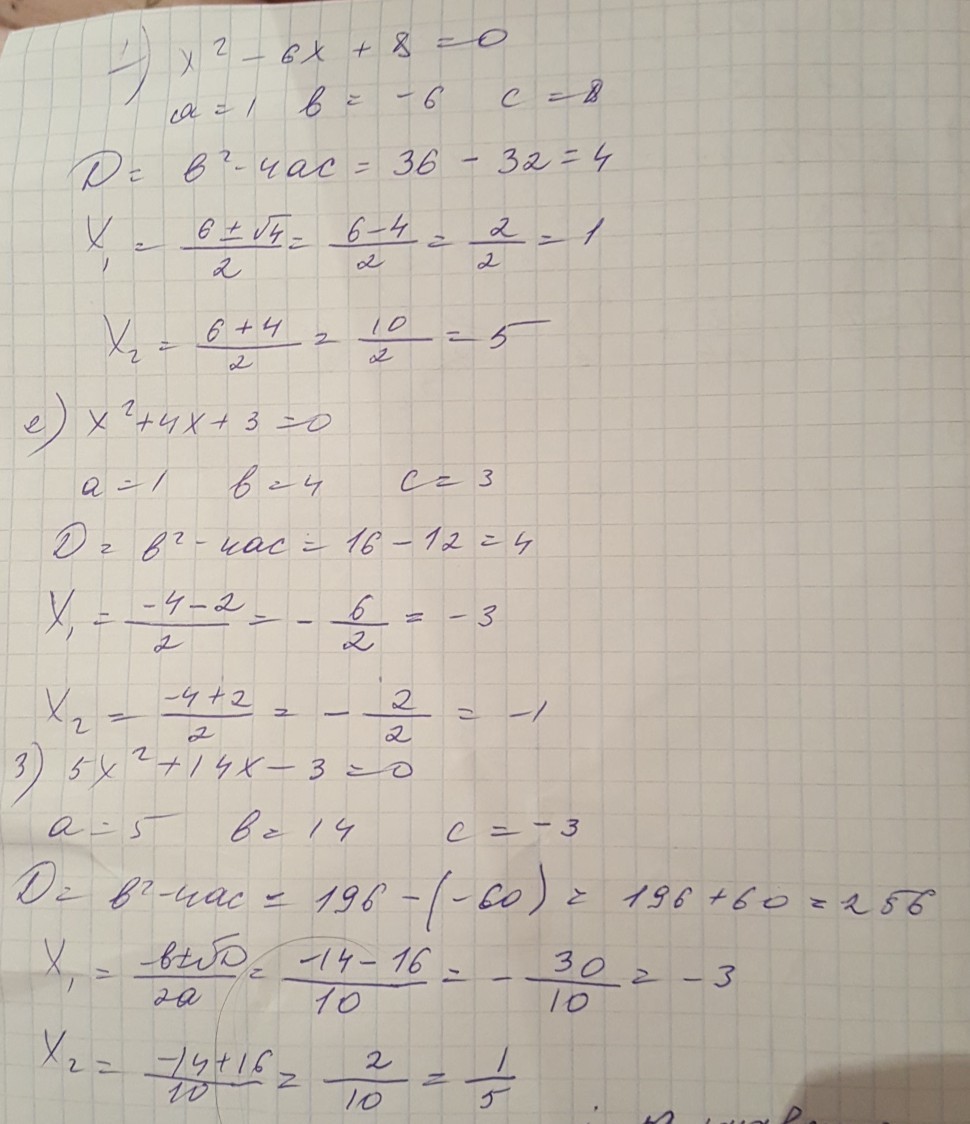 1) x² - 6x + 8 = 0
a = 1 в = -6 c = 8
D = в² - 4ac = 36 - 32 = 4
X₁ = (6 ± √4)/2 = (6 - 4)/2 = 2/2 = 1
X₂ = (6 + 4)/2 = 10/2 = 5
2) x² + 4x + 3 = 0
a = 1 в = 4 c = 3
D = в² - 4ac = 16 - 12 = 4
X₁ = (-4 - 2)/2 = - 6/2 = -3
X₂ = (-4 + 2)/2 = - 2/2 = -1
3) 5x² + 14x - 3 = 0
a = 5 в = 14 c = -3
D = в² - 4ac = 196 - (-60) = 196 + 60 = 256
X₁ = (-в ± √D)/2a = (-14 - 16)/10 = - 30/10 = -3
X₂ = (-14 + 16)/10 = 2/10 = 1/5